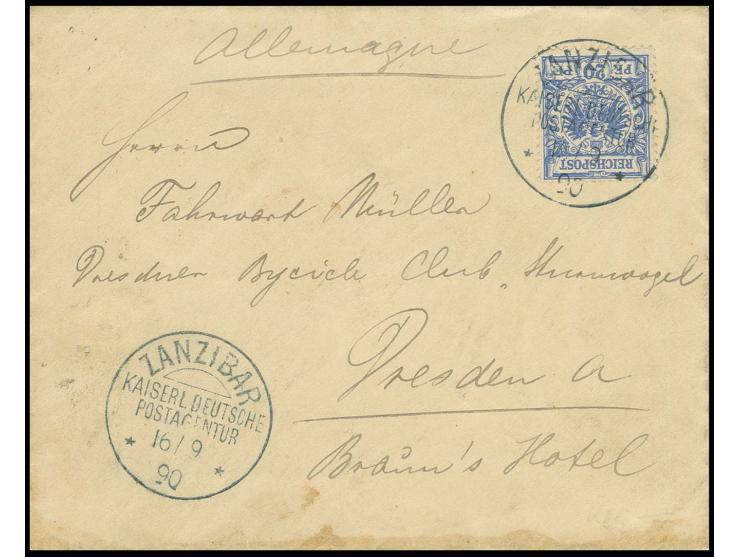 Allemagne
ZANZIBAR
KAISERL. DEUTSCHE
POSTAGENTUR
16/9
90
20
REICHSPOST
Herrn
Fahrwart Müller
Dresdner Bycicle Club „Sturmvogel
Dresden A
Braun's Hotel
ZANZIBAR
KAISERL. DEUTSCHE
POSTAGENTUR
16/9
90